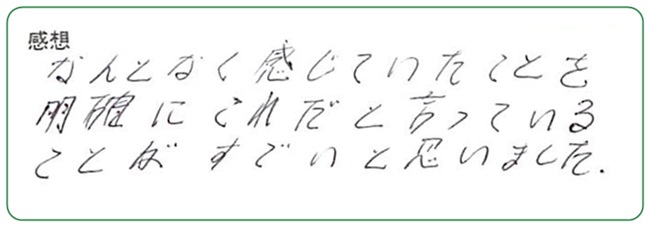 感想
なんとなく感じていたことを
明確にこれだと言っている
ことがすごいと思いました.